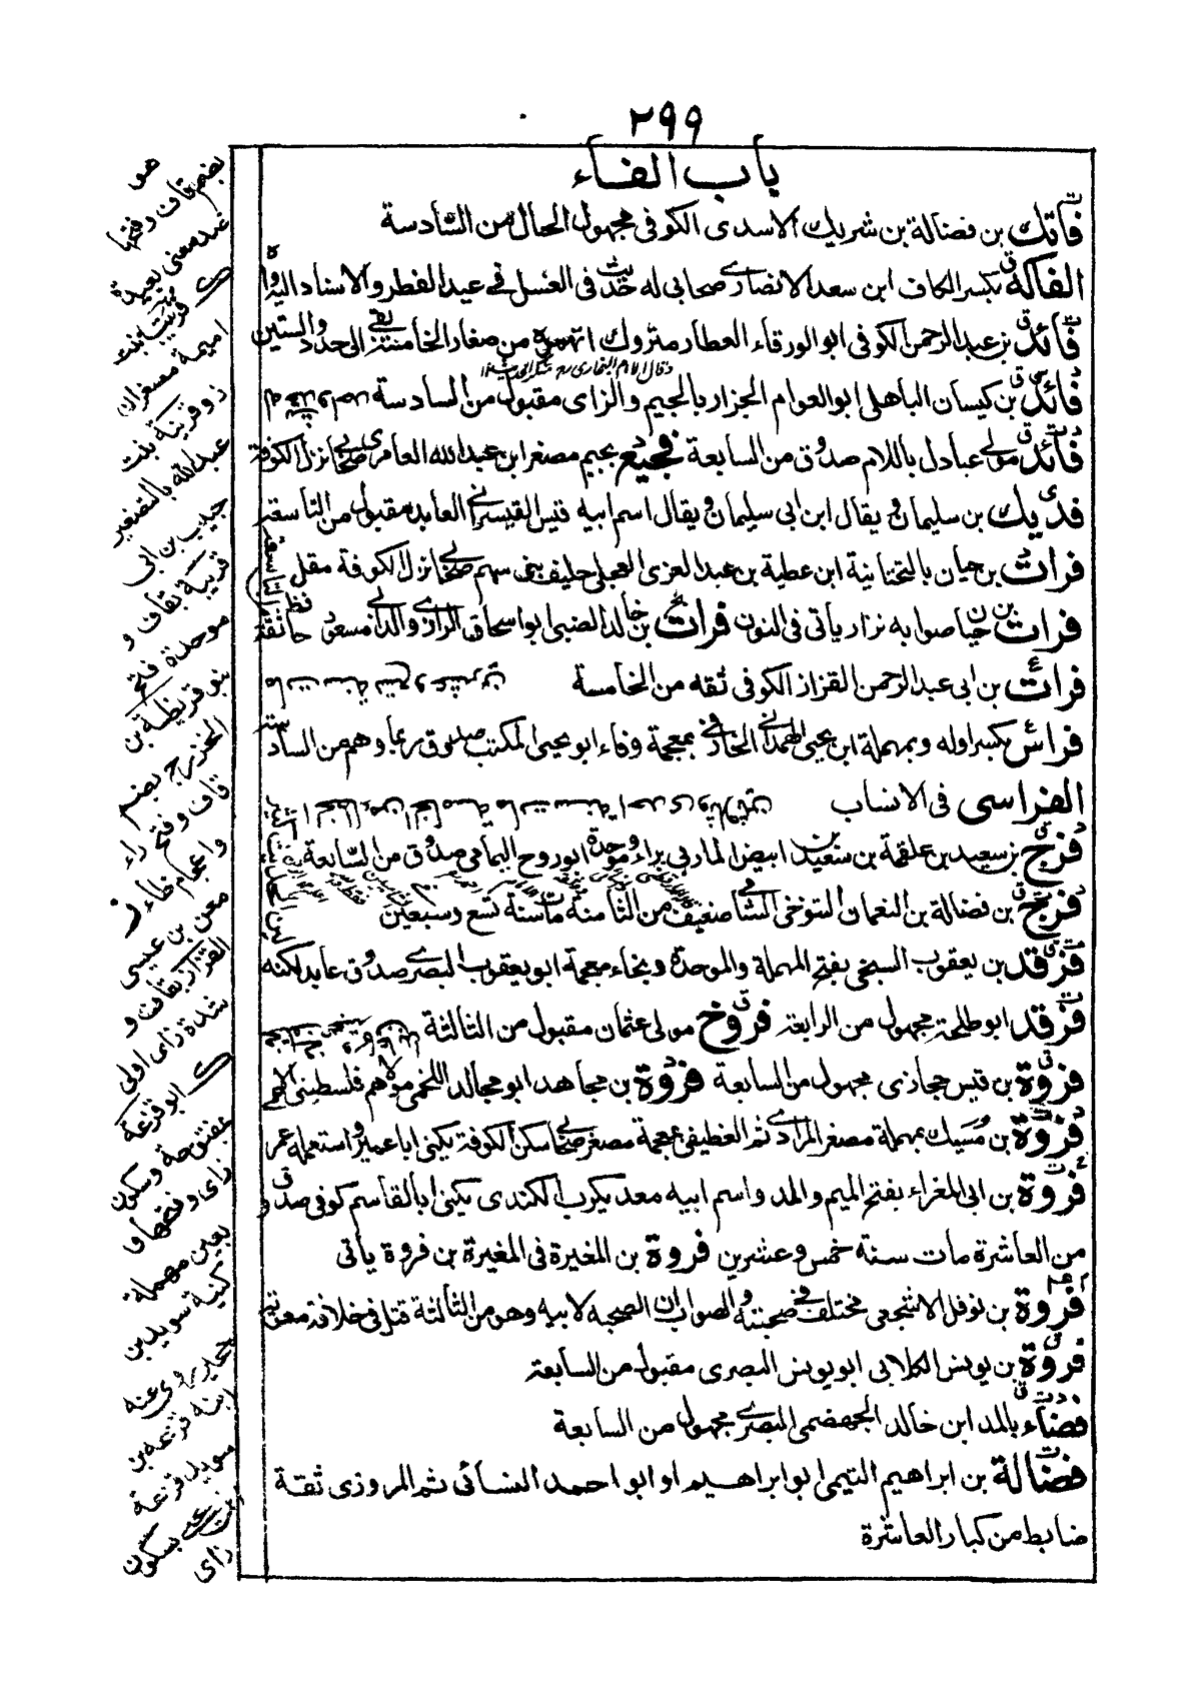 ٢٩٩
باب الفاء
فاتك بن فضالة بن شريك الاسدى الكوفى مجهول الحال من السادسة
الفاكه بكسر الكاف ابن سعد الانصارى صحابى له حديث فى الغسل فى عيد الفطر والاسناد اليه واه
فائد بن عبد الرحمن الكوفى ابو الورقاء العطار متروك اتهموه من صغار الخامسة بقى الى حدود الستين
وقال الامام البخارى رح منكر الحديث
فائد بن كيسان الباهلى ابو العوام الجزار بالجيم والزاى مقبول من السادسة
فائد مولى عبادل باللام صدوق من السابعة فجيع بجيم مصغر ابن عبد الله العامرى صحابى نزل الكوفة
فديك بن سليمان ويقال ابن ابى سليمان ويقال اسم ابيه قيس القيسرانى العابد مقبول من التاسعة
فرات بن حيان بالتحتانية ابن عطية بن عبد العزى العجلى حليف بنى سهم صحابى نزل الكوفة مقل
فرات بن حيان صوابه نزار ياتى فى النون فرات بن خالد الضبى ابو اسحاق الرازى والد ابى مسعود حافظ ثقة من التاسعة
فرات بن ابى عبد الرحمن القزاز الكوفى ثقه من الخامسة
فراس بكسر اوله وبمهملة ابن يحيى الهمدانى الخارفى بمعجمة وفاء ابو يحيى المكتب صدوق ربما وهم من السادسة
مات سنة تسع وعشرين
الفراسى فى الانساب
فرج بن سعيد بن علقمة بن سعيد بن ابيض الماربى براء وموحدة ابو روح اليمامى صدوق من السابعة
فرج بن فضالة بن النعمان التنوخى الشامى ضعيف من الثامنة مات سنة تسع وسبعين
فرقد بن يعقوب السبخى بفتح المهملة والموحدة وبخاء معجمة ابو يعقوب البصرى صدوق عابد لكنه
فرقد ابو طلحة مجهول من الرابعة فروخ مولى عثمان مقبول من الثالثة
فروة بن قيس حجازى مجهول من السابعة فروة بن مجاهد ابو مجالد اللخمى مولاهم فلسطينى
فروة بن مسيك بمهملة مصغر المرادى ثم الغطيفى بمعجمة مصغر صحابى سكن الكوفة يكنى ابا عمير واستعمله عمر
فروة بن ابى المغراء بفتح الميم والمد واسم ابيه معد يكرب الكندى يكنى ابا القاسم كوفى صدوق
من العاشرة مات سنة خمس وعشرين فروة بن المغيرة فى المغيرة بن فروة ياتى
فروة بن نوفل الاشجعى مختلف فى صحبته والصواب ان الصحبه لابيه وهو من الثالثة قتل فى خلافة معوية
فروة بن يونس الكلابى ابو يونس البصرى مقبول من السابعة
فضاء بالمد ابن خالد الجهضمى البصرى مجهول من السابعة
فضالة بن ابراهيم التيمى ابو ابراهيم او ابو احمد النسائى ثم المروزى ثقة
ضابط من كبار العاشرة
هو
بضم قاف وفتحها
ضد معنى بعيد
ك قريبة بنت
اميمة مصغران
ذو قرينة بنت
عبد الله بالتصغير
حبيب بن ابى
قريبة بقاف و
موحدة فتح
بنو قريظة بن
الخزرج بضم
قاف وفتح راء
واعجام ظاء ز
معن بن عيسى
القزاز بقاف و
شدة زاى اولى
ك ابو قزعة
بمفتوحة وسكون
زاى وفتحها و
بعين مهملة
كنية سويد بن
حجير روى عنه
ابنه قزعة بن
سويد قزعة
بن يحيى بسكون
زاى